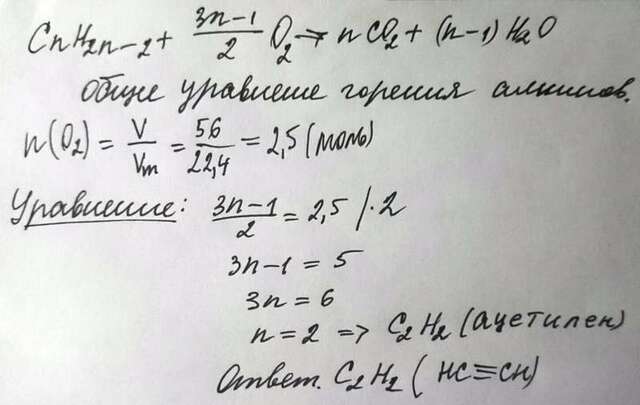 CnH2n-2 + 3n-1/2 O2 → nCO2 + (n-1)H2O
Общее уравнение горения алкинов.
n(O2) = V/Vm = 56/22,4 = 2,5 (моль)
Уравнение: 3n-1/2 = 2,5 /·2
3n-1 = 5
3n = 6
n = 2 => C2H2 (ацетилен)
Ответ. C2H2 ( HC≡CH)